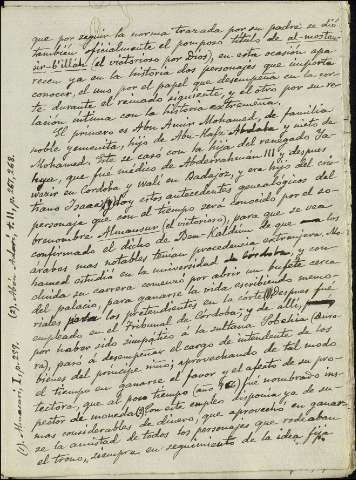 que por seguir la norma trazada por su padre se dió
también oficialmente el pomposo título de al-mostan-
sir-b'illah (el victorioso por Dios), en esta ocasión apa-
recen ya en la historia dos personajes que importa
conocer, el uno por el papel que desempeña en la cor-
te durante el reinado siguiente, y el otro por su re-
lación íntima con la historia extremeña.
El primero es Abu Amir Mohamed, de familia
noble yemenita, hijo de Abu Hafs Abdala y nieto de
Mohamed. Este se casó con la hija del renegado Ya-
heye, que fué médico de Abderrahman III y después
wazir en Córdoba y Walí en Badajoz, y era hijo del cris-
tiano Isaac (1). Doy estos antecedentes genealógicos del
personaje que con el tiempo será conocido por el so-
brenombre Almansur (el victorioso), para que se vea
confirmado el dicho de Ben-Kaldun de que los
árabes mas notables tenian procedencia extranjera. Mo-
hamed estudió en la universidad de Córdoba, y con-
cluida su carrera comenzó por abrir un bufete cerca
del palacio, para ganarse la vida escribiendo memo-
riales para los pretendientes en la corte. Después fué
empleado en el Tribunal de Córdoba; y de allí,
por haber sido simpático á la sultana Sobehia (Auro-
ra), pasó á desempeñar el cargo de intendente de los
bienes del príncipe niño; aprovechando de tal modo
el tiempo en ganarse el favor y el afecto de su pro-
tectora, que al poco tiempo fué nombrado ins-
pector de moneda (2). Con este empleo disponia ya de su-
mas considerables de dinero, que aprovechó en ganar-
se la amistad de todos los personajes que rodeaban
el trono, siempre en seguimiento de la idea fija
(1). Maccari, I, p. 259.
(2). Abén-Adarí t. II, p. 267, 268.